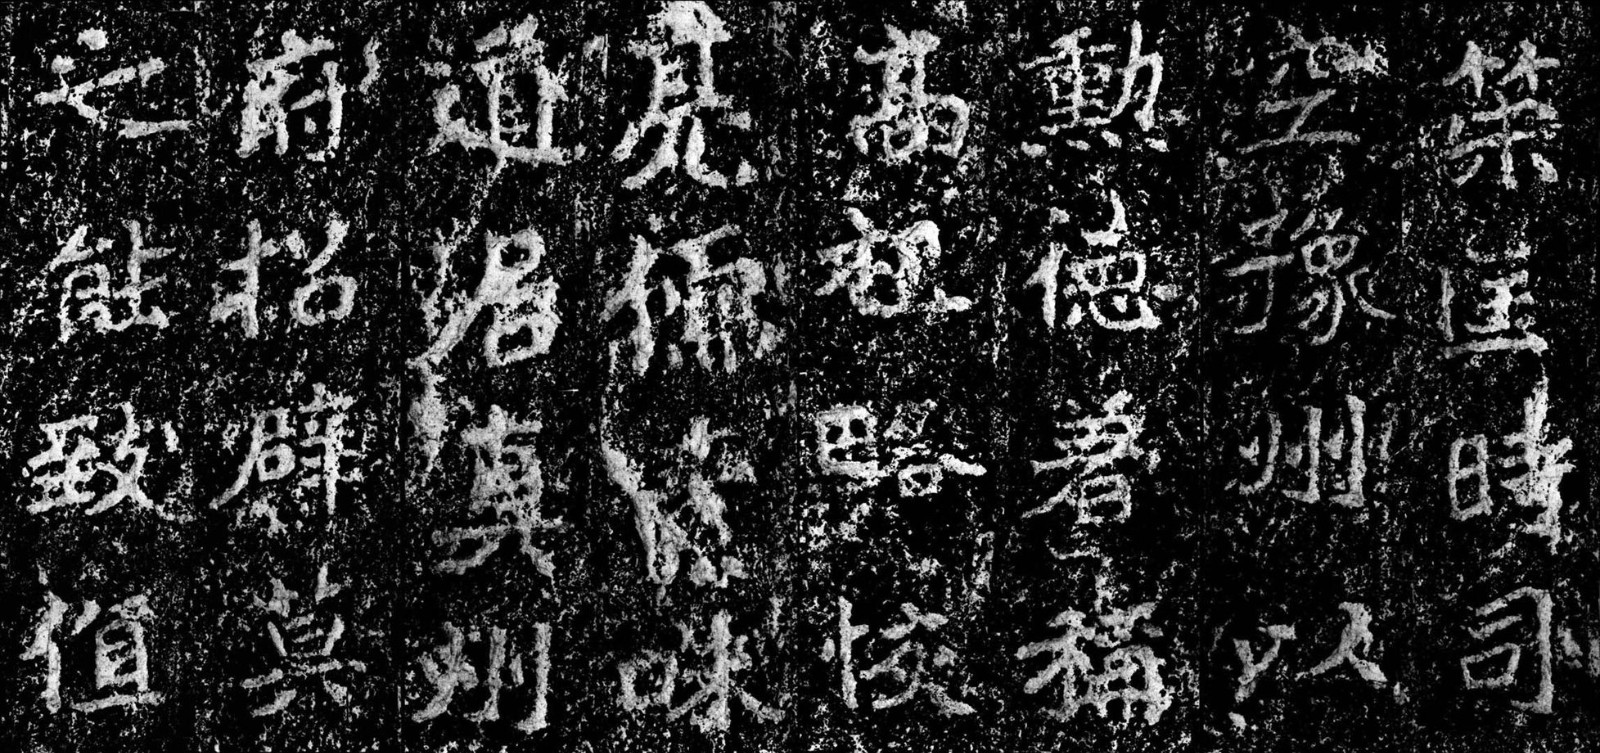 策匡時司
空豫州以
勳德著稱
高祖略恢
亮儒素味
道居真州
府招辟莫
之能致值